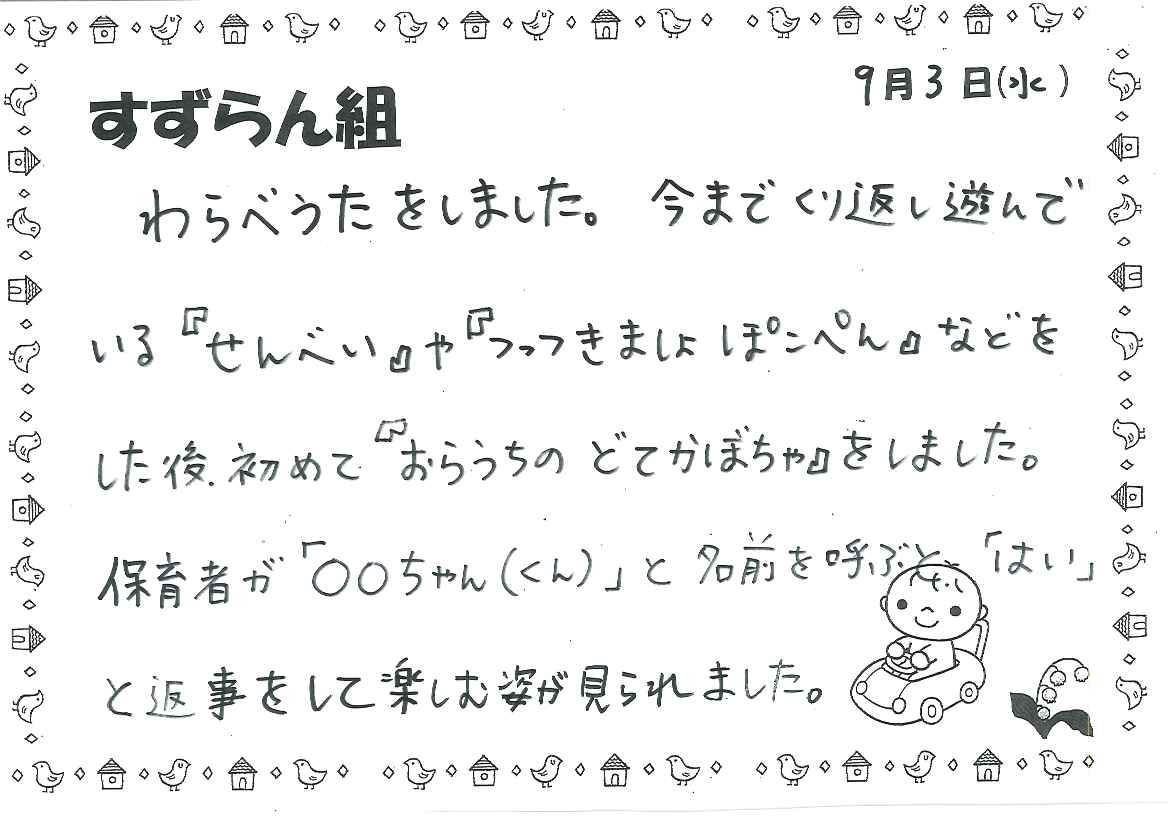 9月3日(水)
すずらん組
わらべうたをしました。今までくり返し遊んで
いる『せんべい』や『つっつきましょ ぽこぺん』などを
した後、初めて『おらうちの どてかぼちゃ』をしました。
保育者が「〇〇ちゃん(くん)」と名前を呼ぶと、「はい」
と返事をして楽しむ姿が見られました。